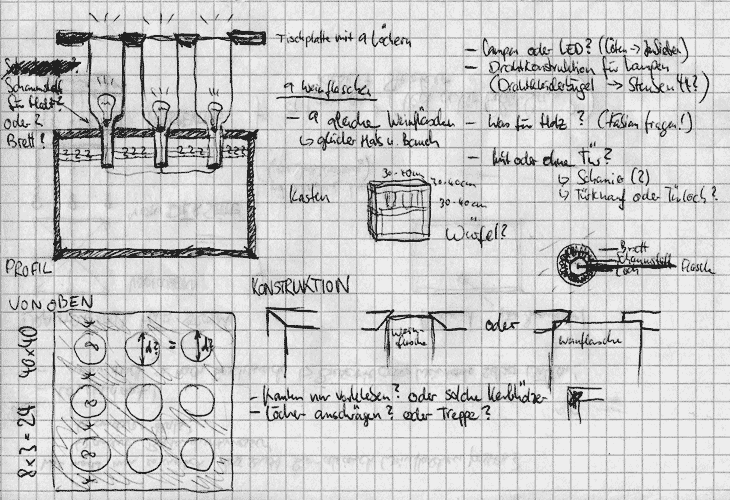 Tischplatte mit 9 Löchern
Schaumstoff
für Halt?
oder?
Brett?
9 Weinflaschen
- 9 gleiche Weinflaschen
↳ gleicher Hals u. Bauch
- Lampen oder LED? (Löten →
- Drahtkonstruktion für Lampen
(Drahtkleiderbügel →
- Was für Holz? (Fabian fragen!)
- mit oder ohne Tür?
↳ Scharnier (2)
↳ Türknauf oder Türloch?
Kasten
30-40cm
30-40cm
30-40cm
Würfel?
Brett
Schaumstoff
Loch
Flasche
PROFIL
VON OBEN
KONSTRUKTION
Wein-
flasche
oder
Weinflasche
4
8
d?
=
d?
8
4
8
4
40x40
8x3=24
- Kanten nur verkleben? oder solche
- Löcher anschrägen? oder Treppe?